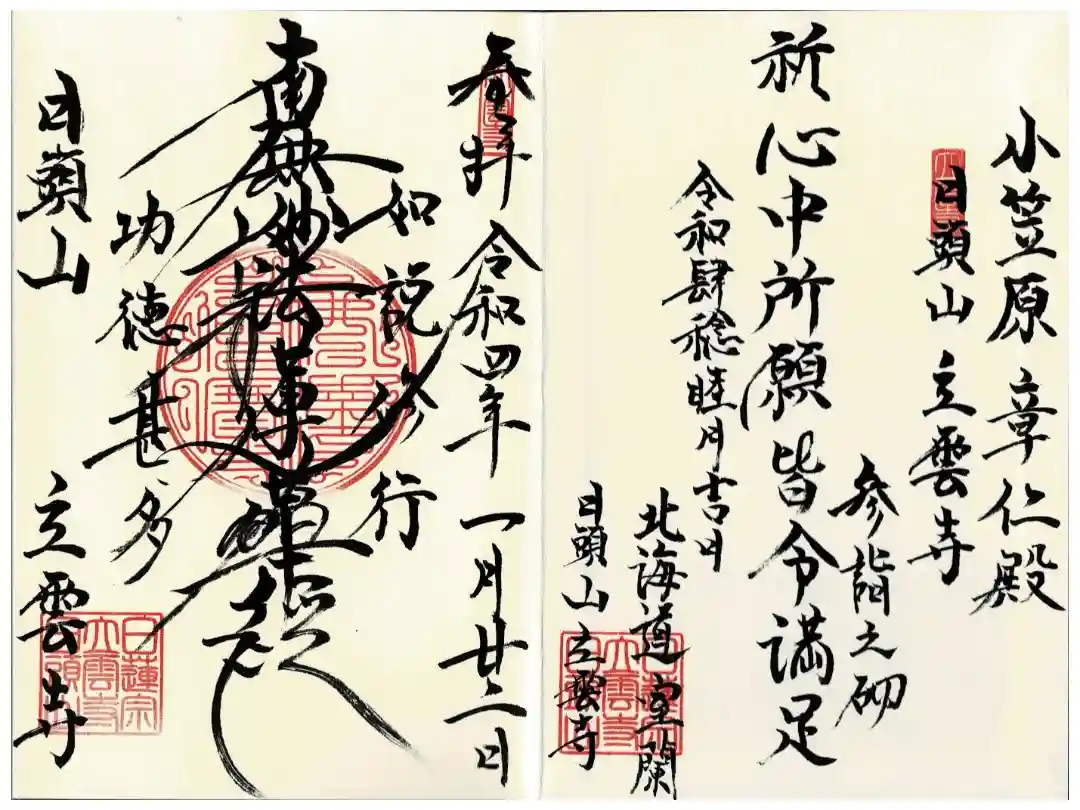 小笠原 章仁殿
日頭山 立雲寺
参詣之砌
祈心中所願皆令満足
令和肆稔睦月吉日
北海道室蘭
日頭山立雲寺
奉拝 令和四年一月廿二日
如説修行
南無妙法蓮華経
功徳甚多
日頭山 立雲寺
日蓮宗
立雲寺
日頭山